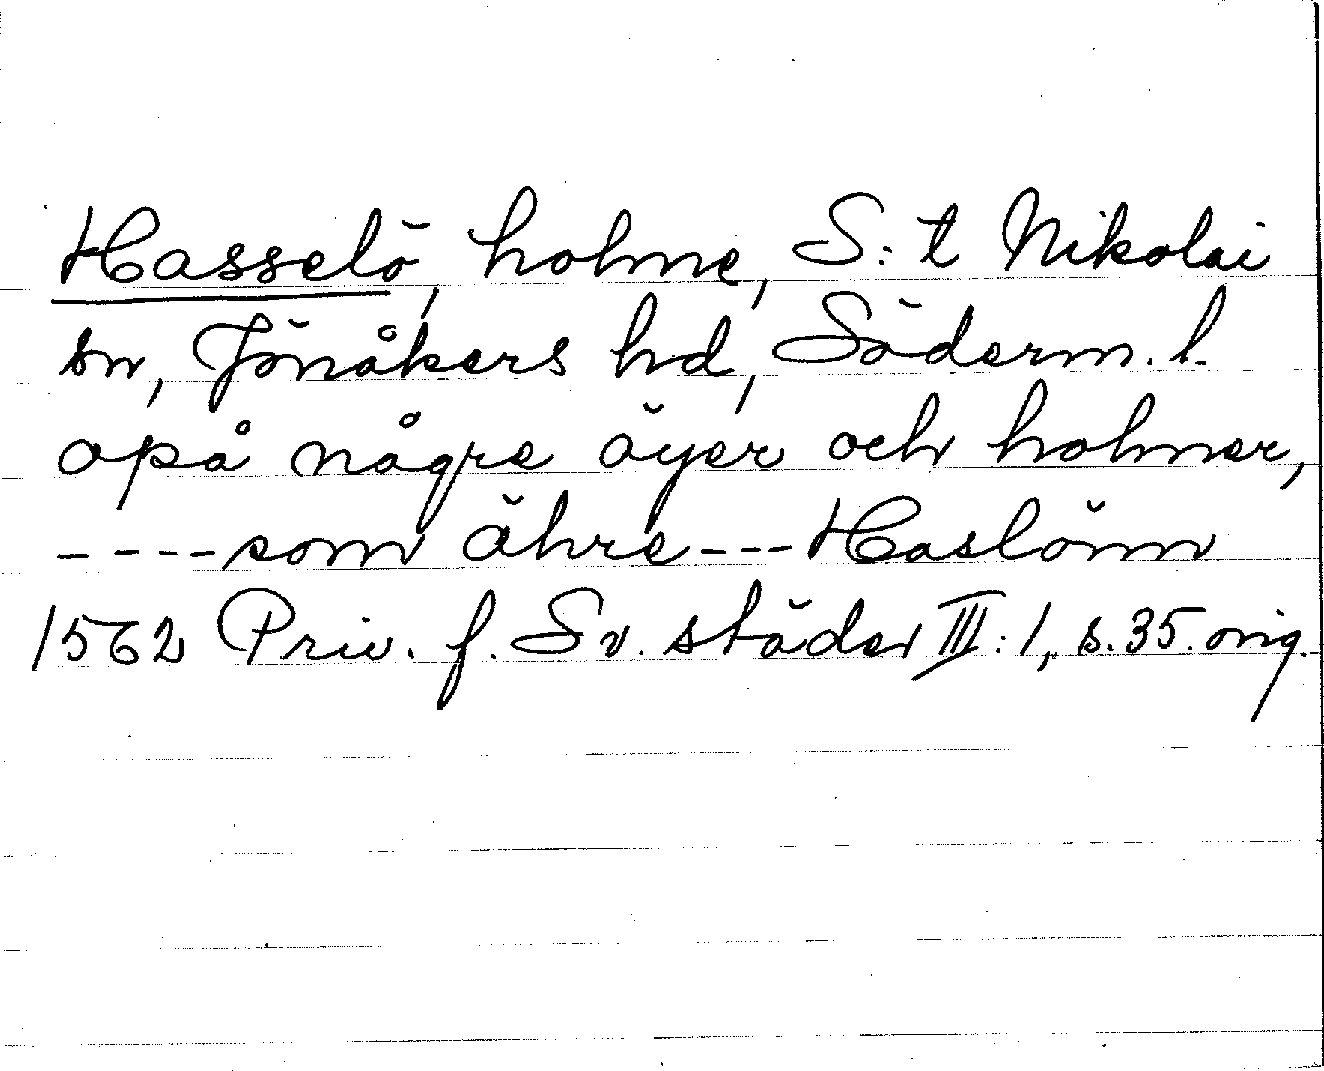 Hasselö, holme, S:t Nikolai
sn, Jönåkers hd, Söderm. l.
opå någre öyer och holmer,
----som ähre---Haslönn
1562 Priv. f. Sv. städer III:1, s. 35. orig.